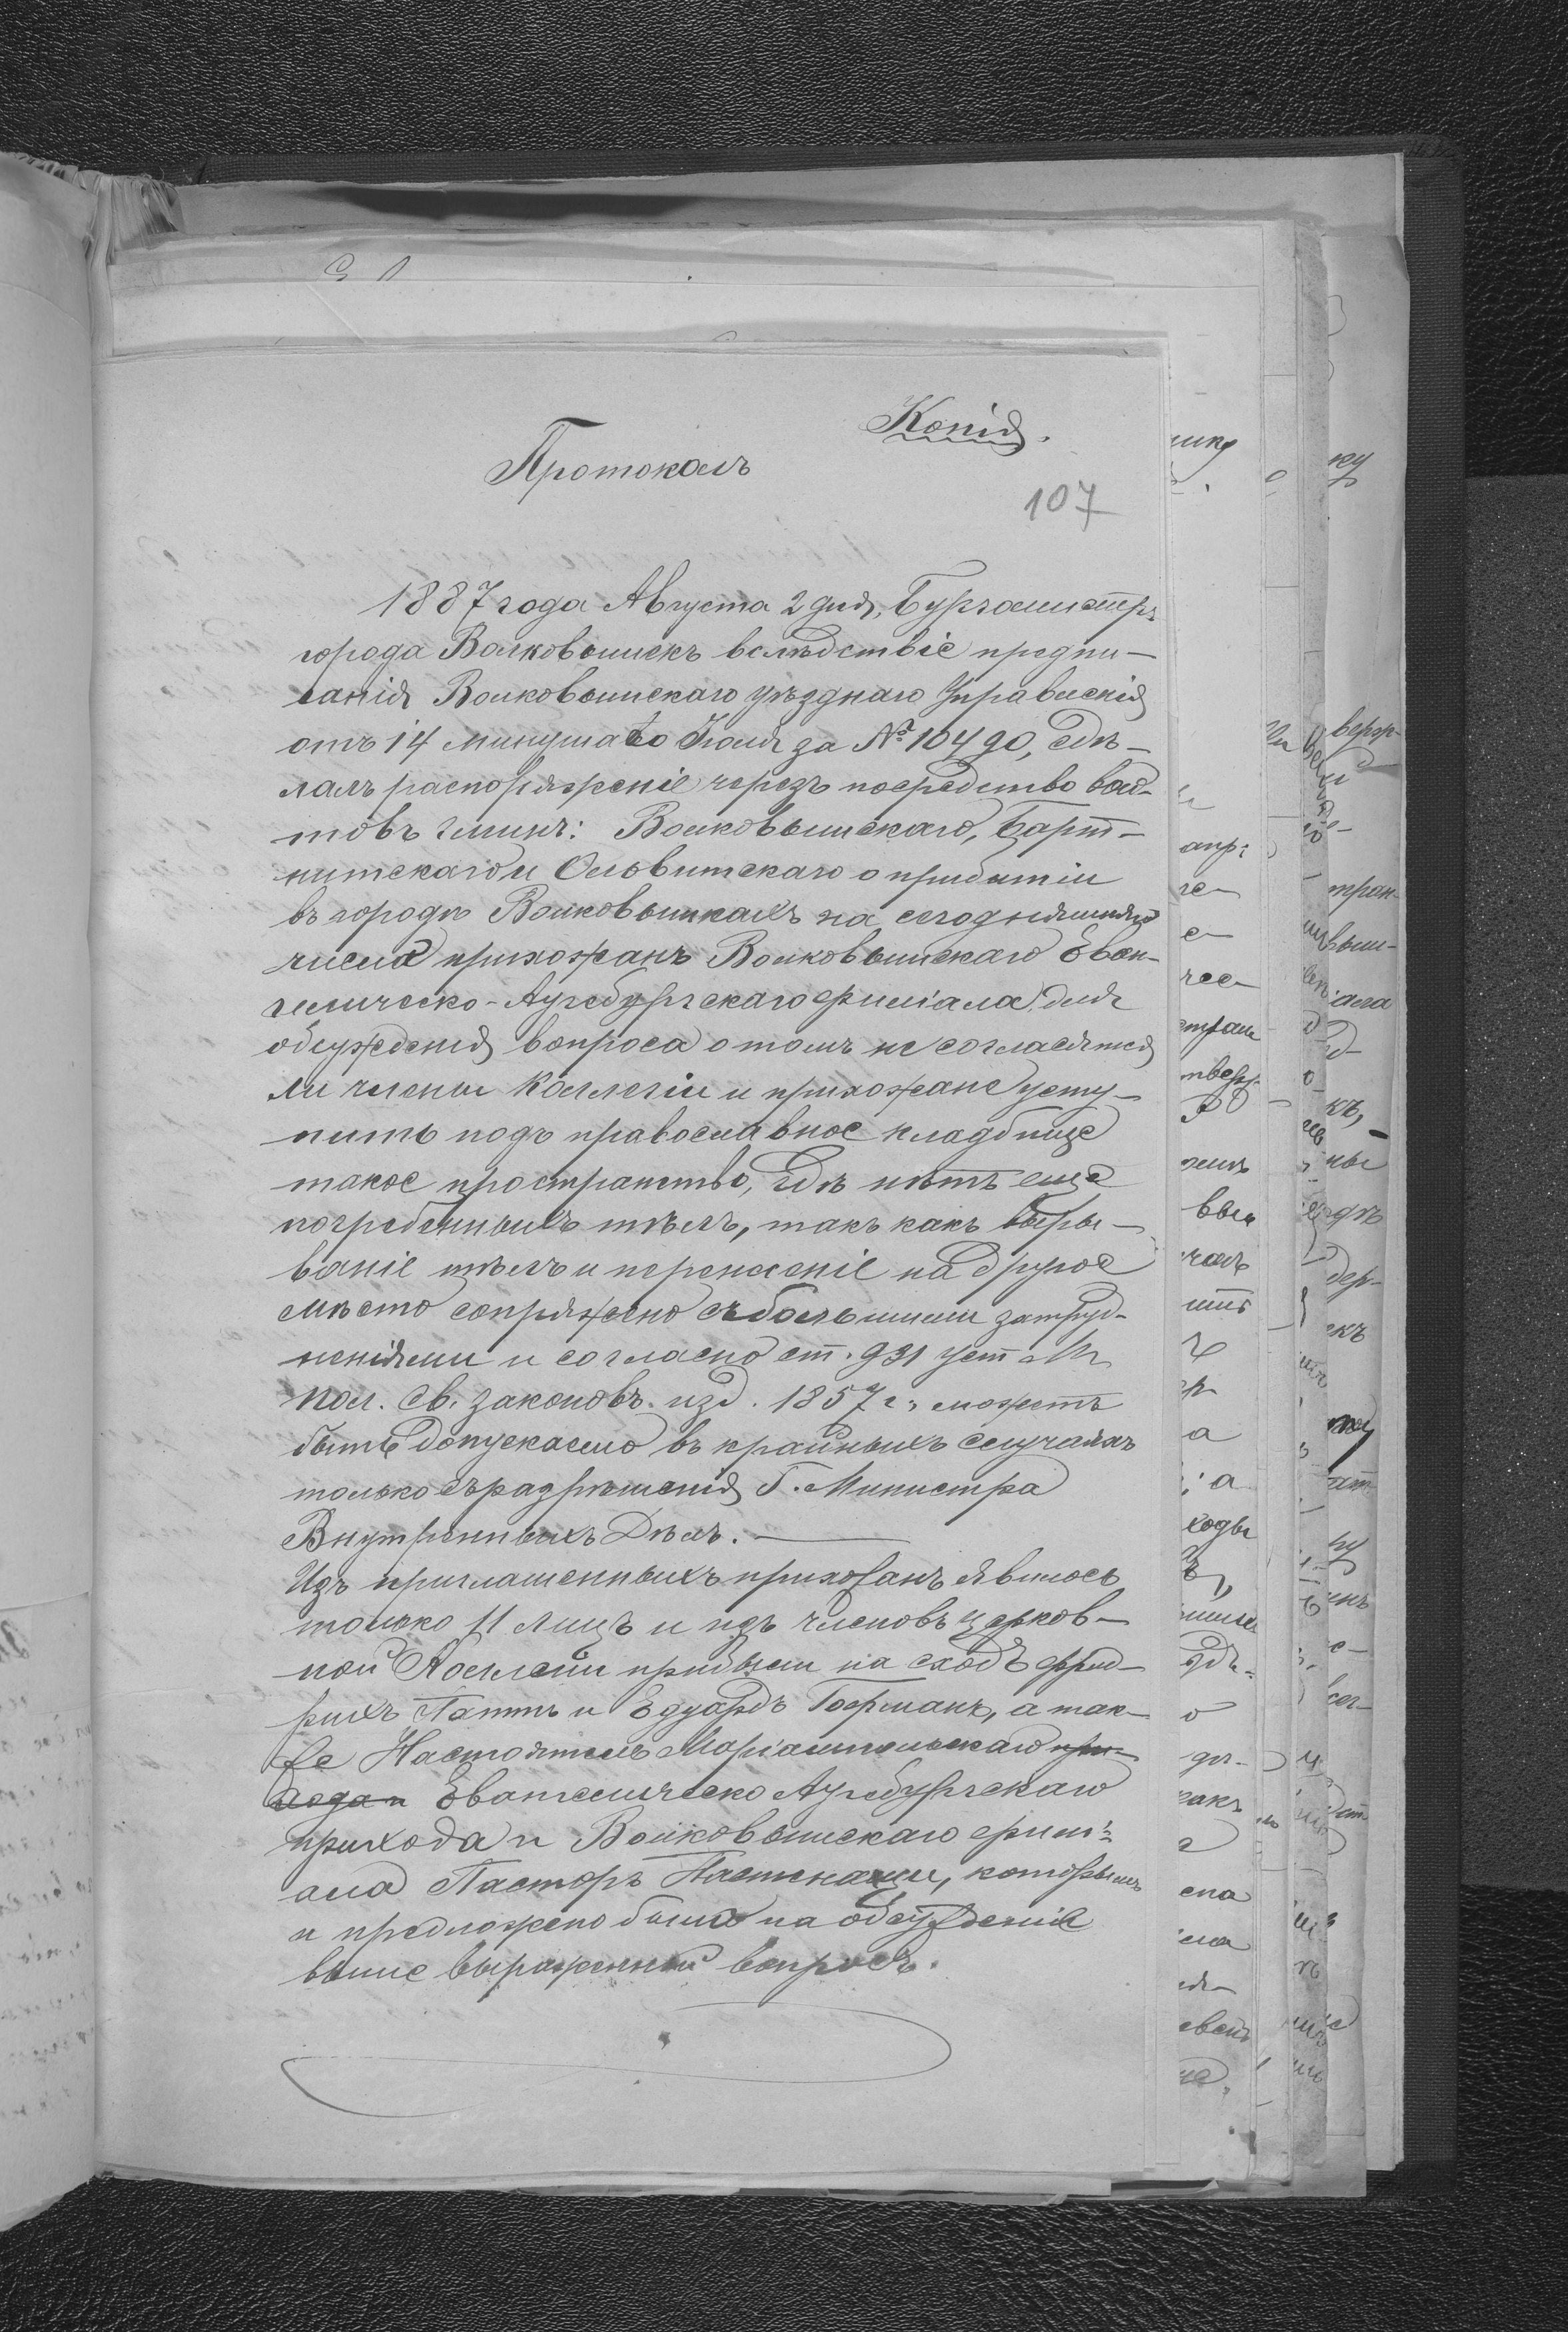 Копія.
Протоколъ
107
1887 года Августа 2 дня, Бургомистръ
города Волковышекъ вслѣдствіе предпи-
санія Волковышскаго уѣзднаго Управленія
отъ 14 минушаго Іюля за № 10490, сдѣ-
лалъ распоряженіе чрезъ посредство вой-
товъ гминъ: Волковышскаго, Барт-
нитскаго и Ольвитскаго о прибытіи
въ городъ Волковышкахъ на сегодняшняго
числа прихожанъ Волковышскаго Еван-
гелическо-Аугсбургскаго филіала, для
обсужденія вопроса о томъ не согласятся
ли члены Коллегіи и прихожане усту-
пить подъ православное кладбище
такое пространство, гдѣ нѣтъ еще
погребенныхъ тѣлъ, такъ какъ выры-
ваніе тѣлъ и перенесеніе на другое
мѣсто сопряжено съ большими затруд-
неніями и согласно ст. 931 уст
пол. Св. законовъ изд. 1857 г. можетъ
быть допускаемо въ крайныхъ случаяхъ
только съ разрѣшенія Г. Министра
Внутреннихъ Дѣлъ.
Изъ приглашенныхъ прихожанъ явилось
только 11 лицъ и изъ членовъ церков-
ной Коллегіи прибыли на сходъ Фрид-
рихъ и Едуардъ Гофманъ, а так-
же Настоятель Маріампольскаго при-
хода и Евангелическо Аугсбургскаго
прихода и Волковышскаго филі-
ала Пасторъ, которымъ
и предложено было на обсужденіе
выше выраженный вопросъ.